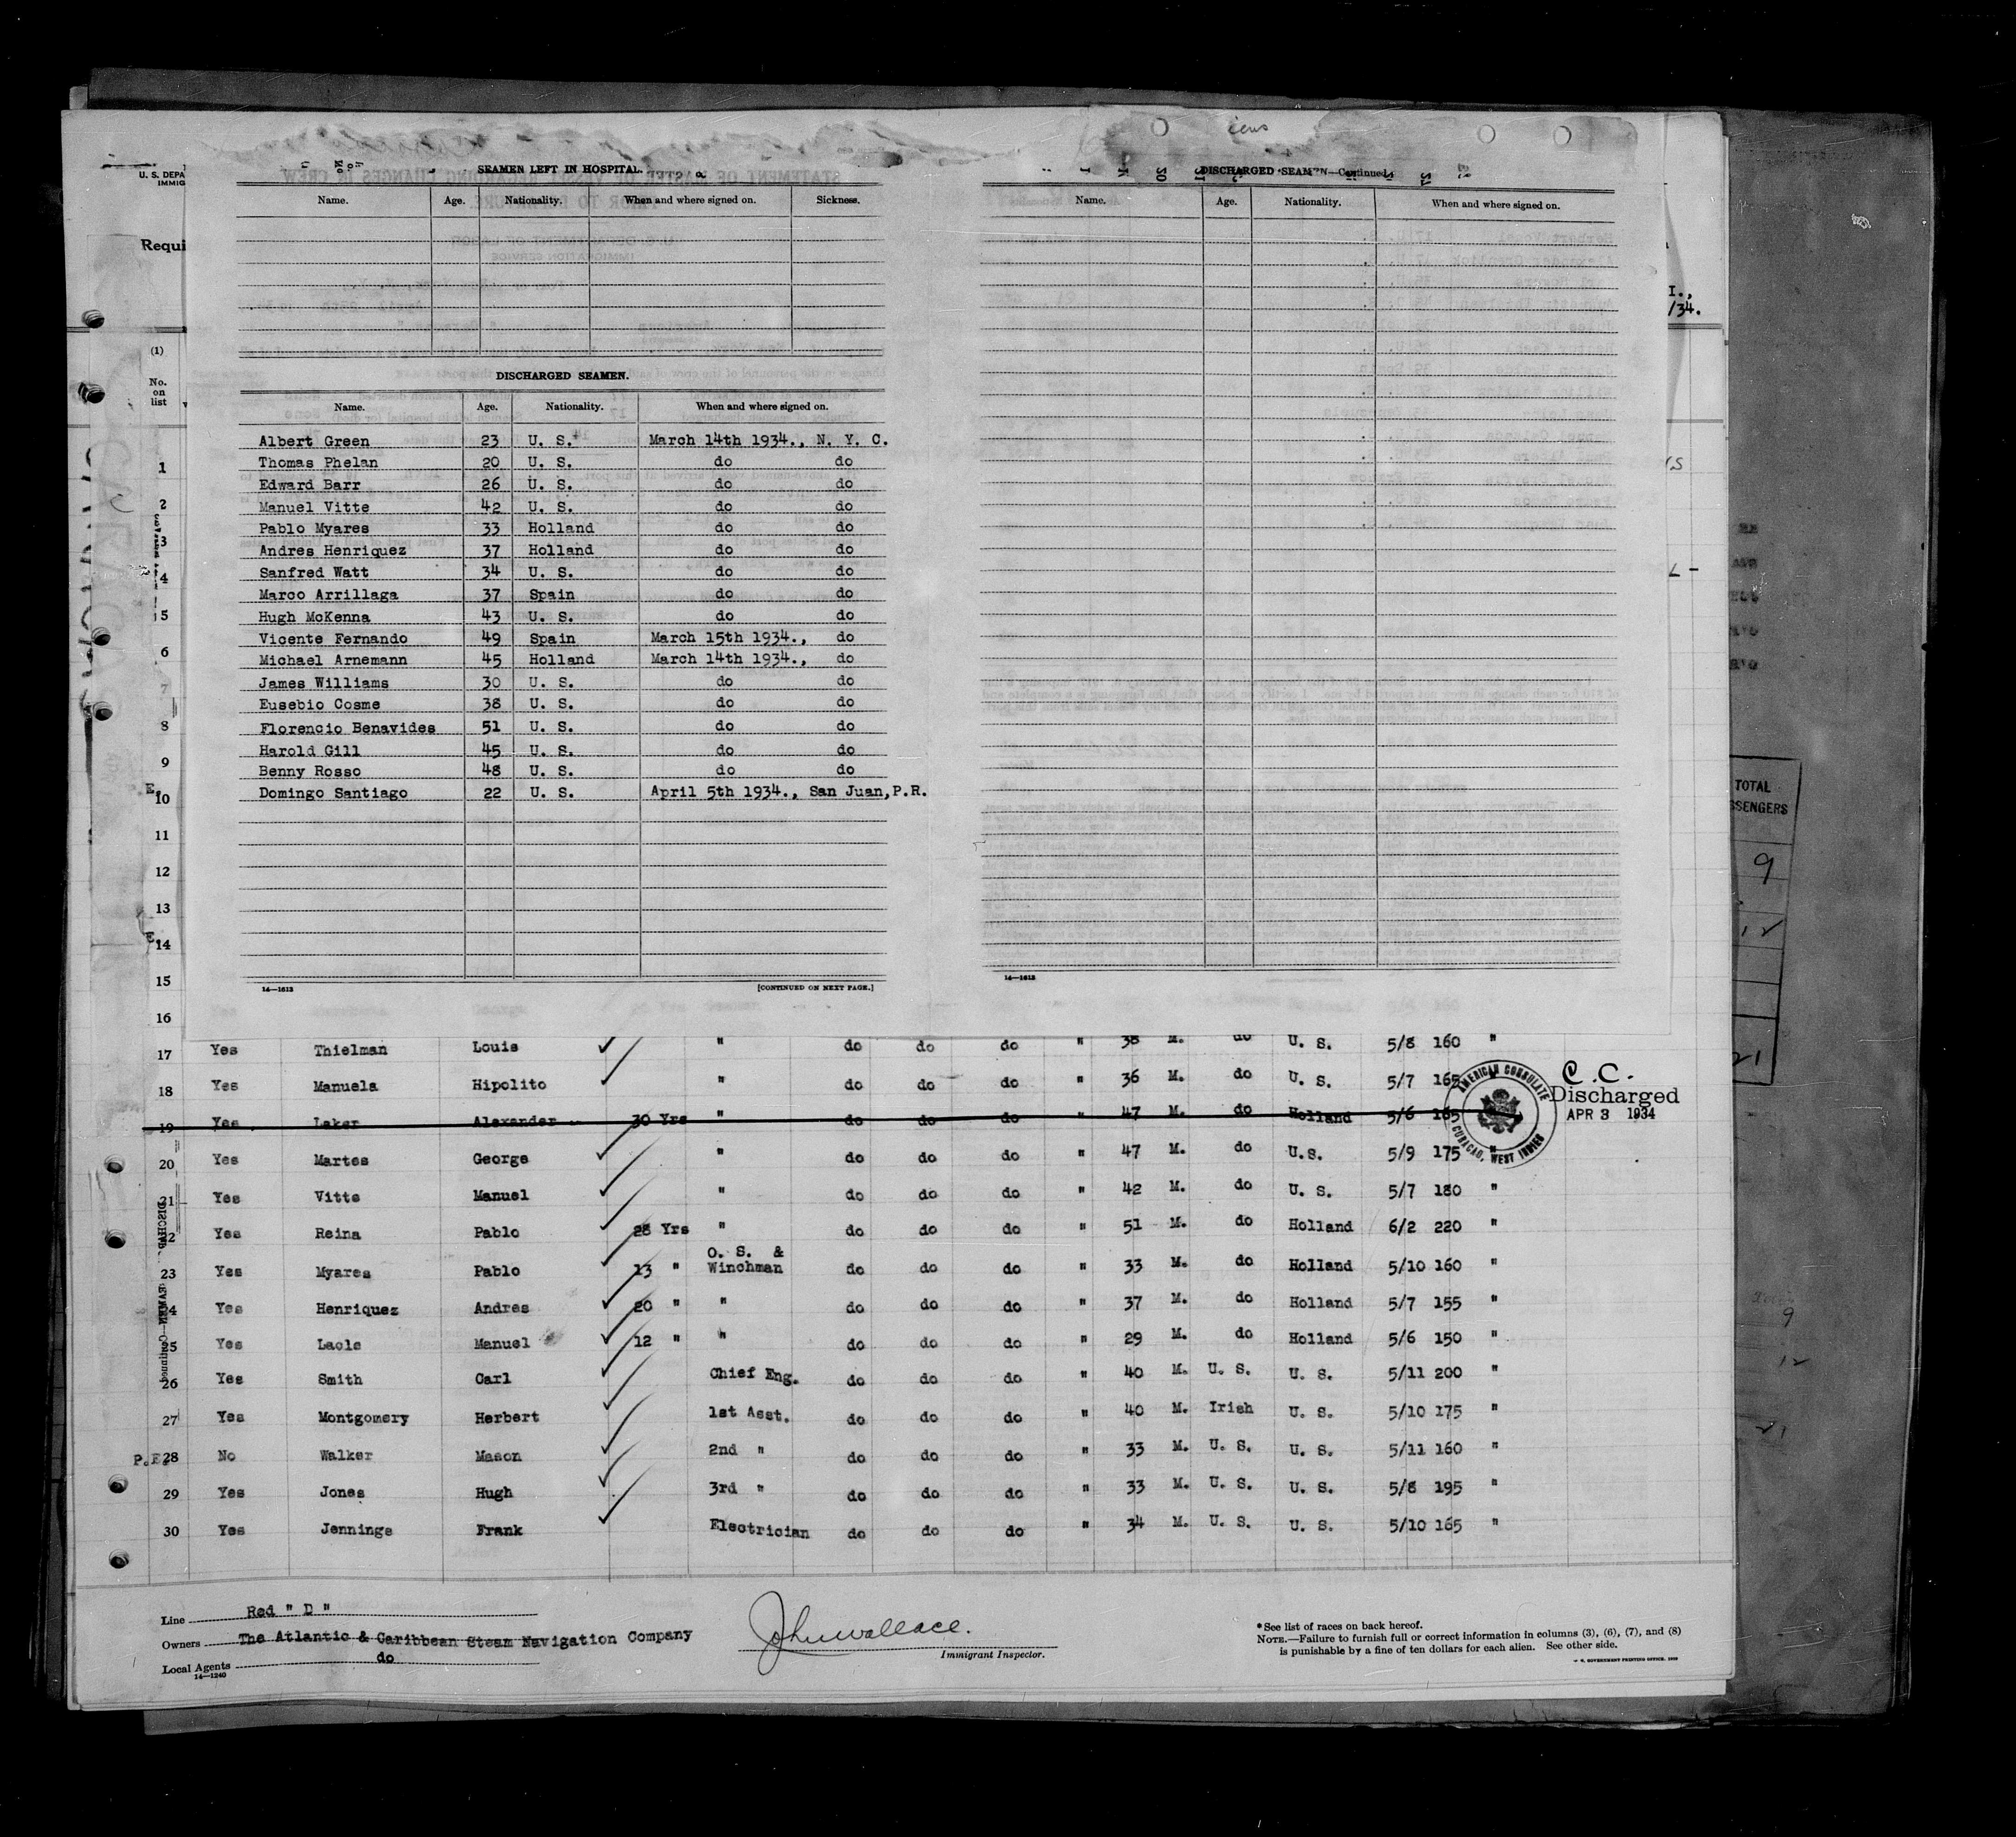 U. S. DEPA
IMMIG
Requi
(1)
No.
on
list
SEAMEN LEFT IN HOSPITAL.
Name. Age. Nationality. When and where signed on. Sickness.
DISCHARGED SEAMEN.
Name. Age. Nationality. When and where signed on.
Albert Green 23 U. S. March 14th 1934., N. Y. C.
Thomas Phelan 20 U. S. do do
Edward Barr 26 U. S. do do
Manuel Vitte 42 U. S. do do
Pablo Myares 33 Holland do do
Andres Henriquez 37 Holland do do
Sanfred Watt 34 U. S. do do
Marco Arrillaga 37 Spain do do
Hugh McKenna 43 U. S. do do
Vicente Fernando 49 Spain March 15th 1934., do
Michael Arnemann 45 Holland March 14th 1934., do
James Williams 30 U. S. do do
Eusebio Cosme 38 U. S. do do
Florencio Benavides 51 U. S. do do
Harold Gill 45 U. S. do do
Benny Rosso 48 U. S. do do
Domingo Santiago 22 U. S. April 5th 1934., San Juan, P.R.
14—1613 [CONTINUED ON NEXT PAGE.]
DISCHARGED SEAMEN—Continued.
Name. Age. Nationality. When and where signed on.
14—1613
I.,
/34.
TOTAL
SSENGERS
9
12
21
1
2
3
4
5
6
7
8
9
10
11
12
13
14
15
16
17 Yes Thielman Louis " do do do " 38 M. do U. S. 5/8 160 "
18 Yes Manuela Hipolito " do do do " 36 M. do U. S. 5/7 165 "
19 Yes Laker Alexander 30 Yrs " do do do " 47 M. do Holland 5/6 165
C.C.
Discharged
APR 3 1934
AMERICAN CONSULATE
CURACAO, WEST INDIES
20 Yes Martes George " do do do " 47 M. do U.S. 5/9 175 "
21 Yes Vitte Manuel " do do do " 42 M. do U. S. 5/7 180 "
22 Yes Reina Pablo 28 Yrs " do do do " 51 M. do Holland 6/2 220 "
23 Yes Myares Pablo 13 " O. S. & Winchman do do do " 33 M. do Holland 5/10 160 "
24 Yes Henriquez Andres 20 " " do do do " 37 M. do Holland 5/7 155 "
25 Yes Laole Manuel 12 " " do do do " 29 M. do Holland 5/6 150 "
26 Yes Smith Carl Chief Eng. do do do " 40 M. U. S. U. S. 5/11 200 "
27 Yes Montgomery Herbert 1st Asst. do do do " 40 M. Irish U. S. 5/10 175 "
28 No Walker Mason 2nd " do do do " 33 M. U. S. U. S. 5/11 160 "
29 Yes Jones Hugh 3rd " do do do " 33 M. U. S. U. S. 5/8 195 "
30 Yes Jennings Frank Electrician do do do " 34 M. U. S. U. S. 5/10 165 "
Line Red " D "
Owners The Atlantic & Caribbean Steam Navigation Company
Local Agents do
14—1240
John Wallace.
Immigrant Inspector.
*See list of races on back hereof.
NOTE.—Failure to furnish full or correct information in columns (3), (6), (7), and (8)
is punishable by a fine of ten dollars for each alien. See other side.